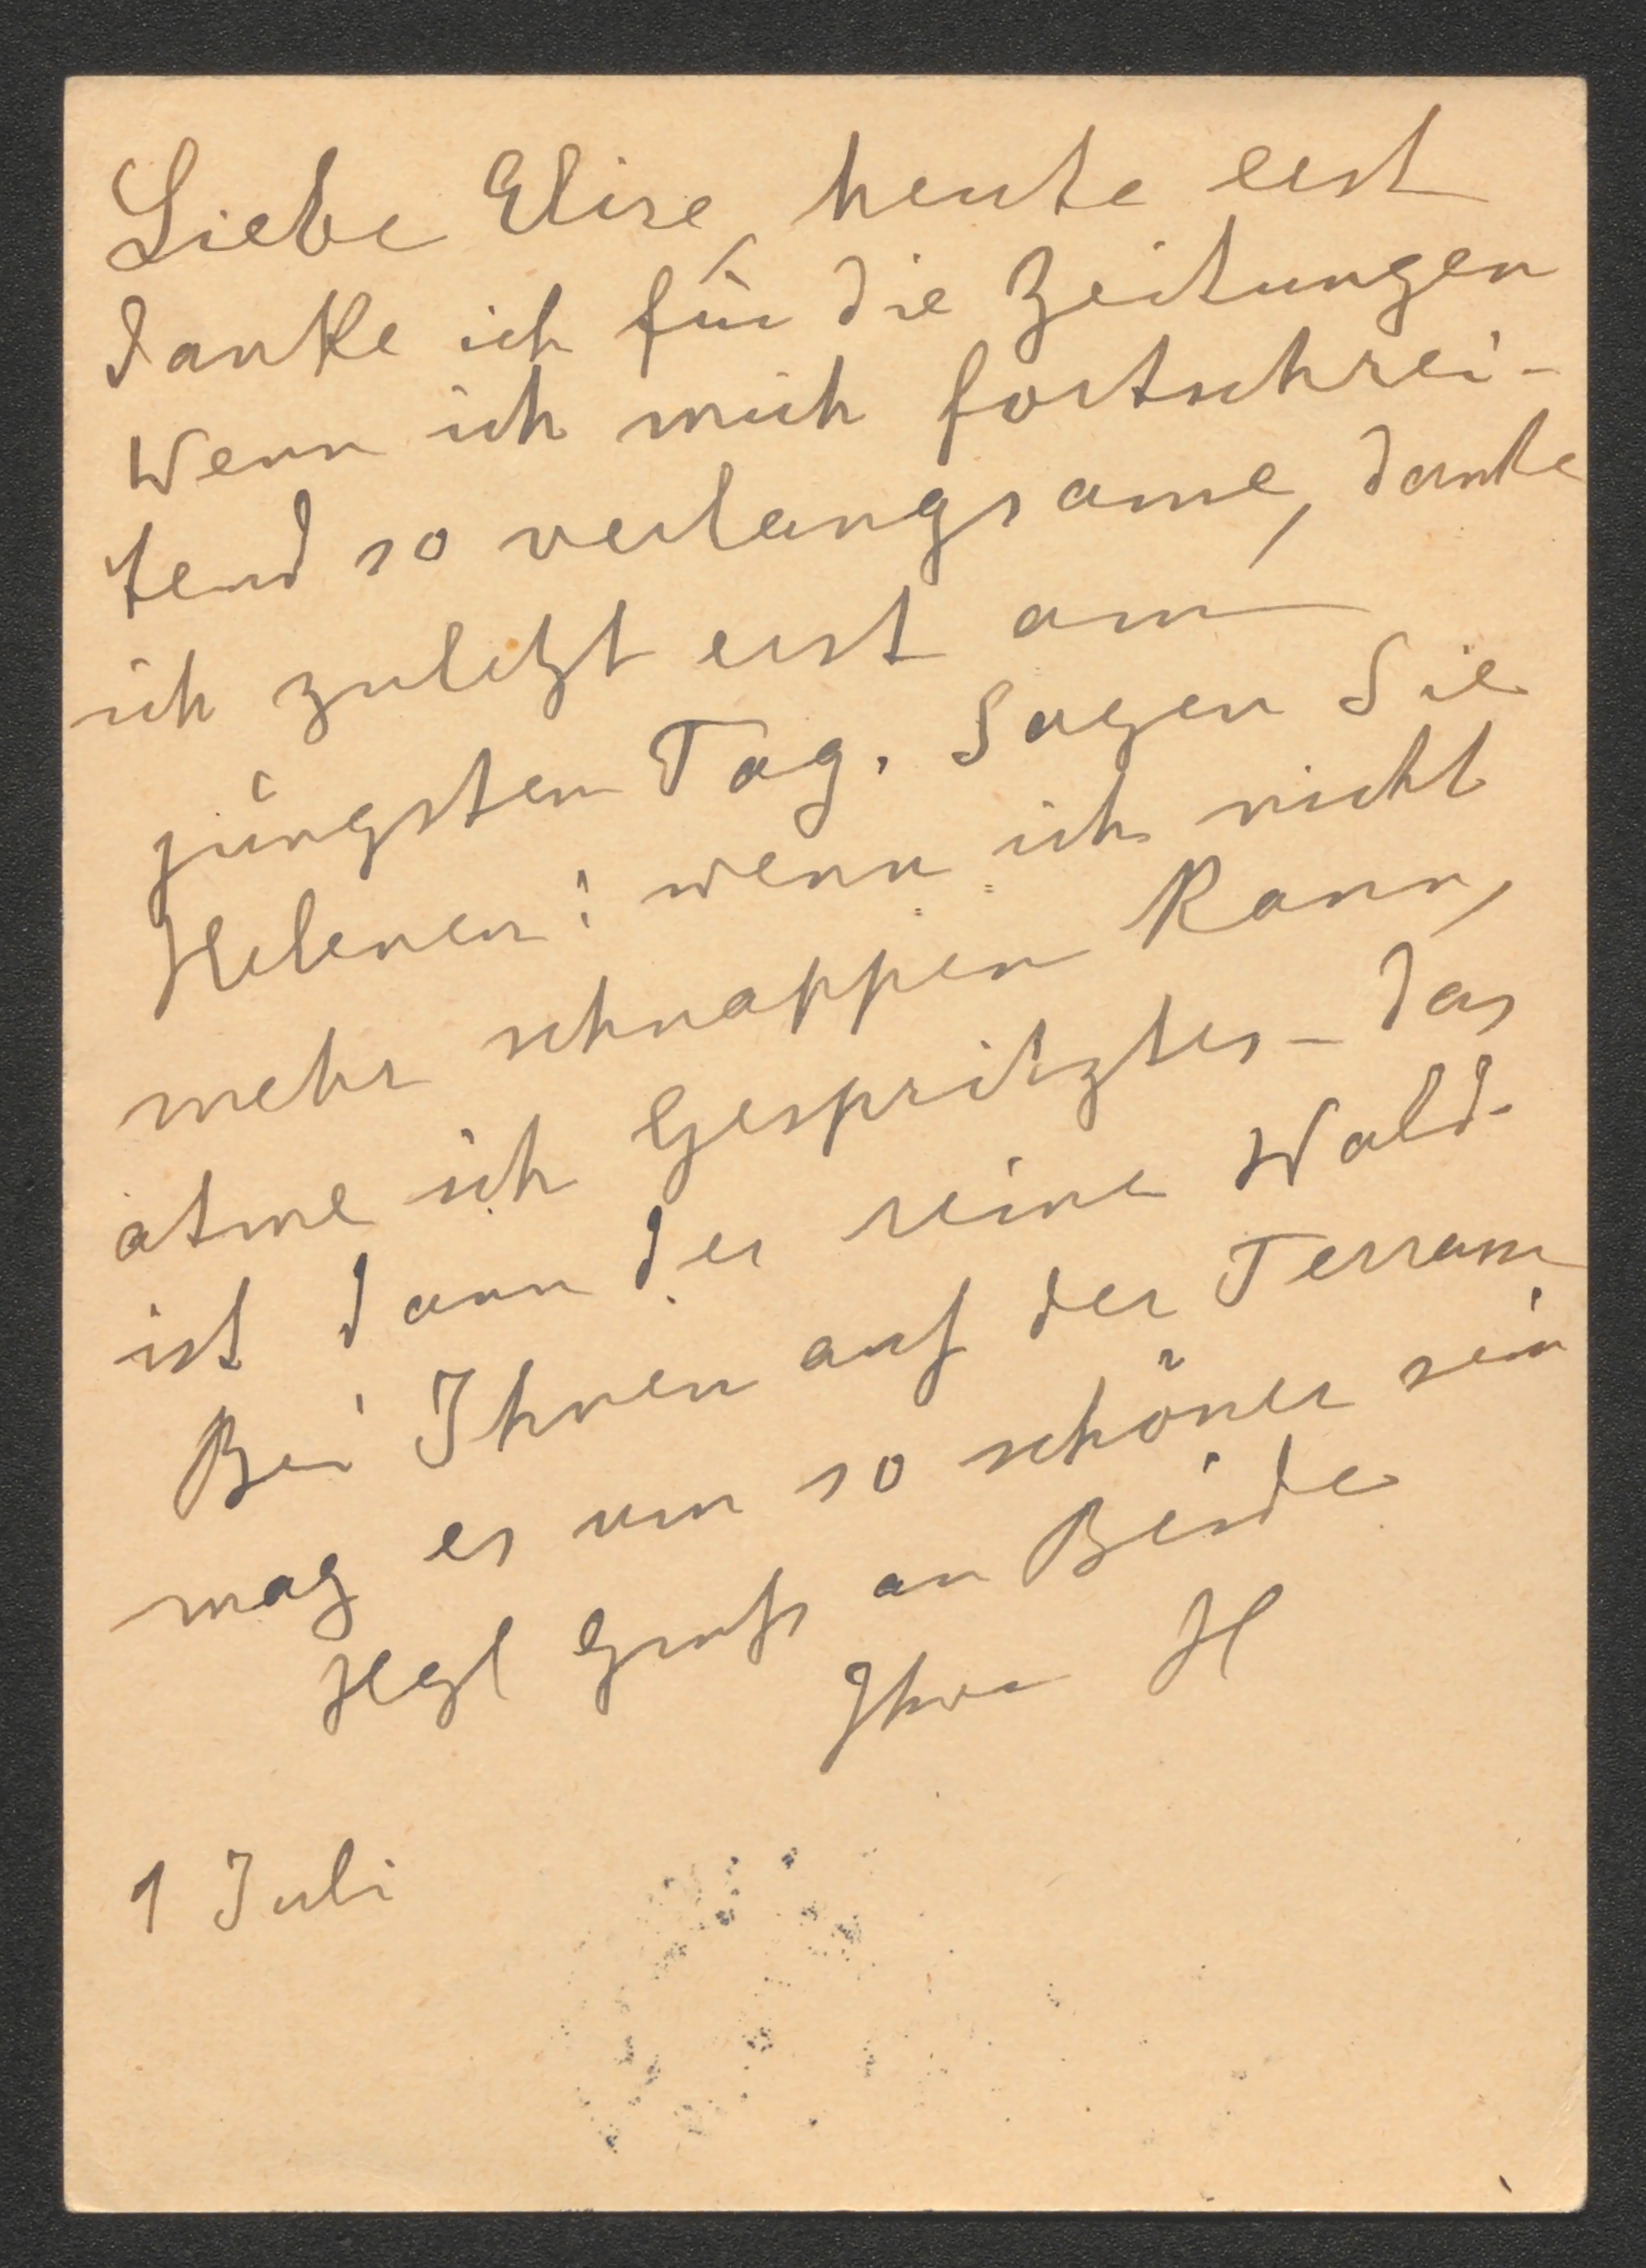 Liebe Elise, heute erst
danke ich für die Zeitungen
Wenn ich mich fortschrei-
tend so verlangsame, danke
ich zuletzt erst am
jüngsten Tag. Sagen Sie
Helenen: wenn ich nicht
mehr schnappen kann,
atme ich Gespritztes – das
ist dann der reine Wald.
Bei Ihnen auf der Terrasse
mag es um so schöner sein
Hgl Gruß an Beide
Ihre H
1 Juli